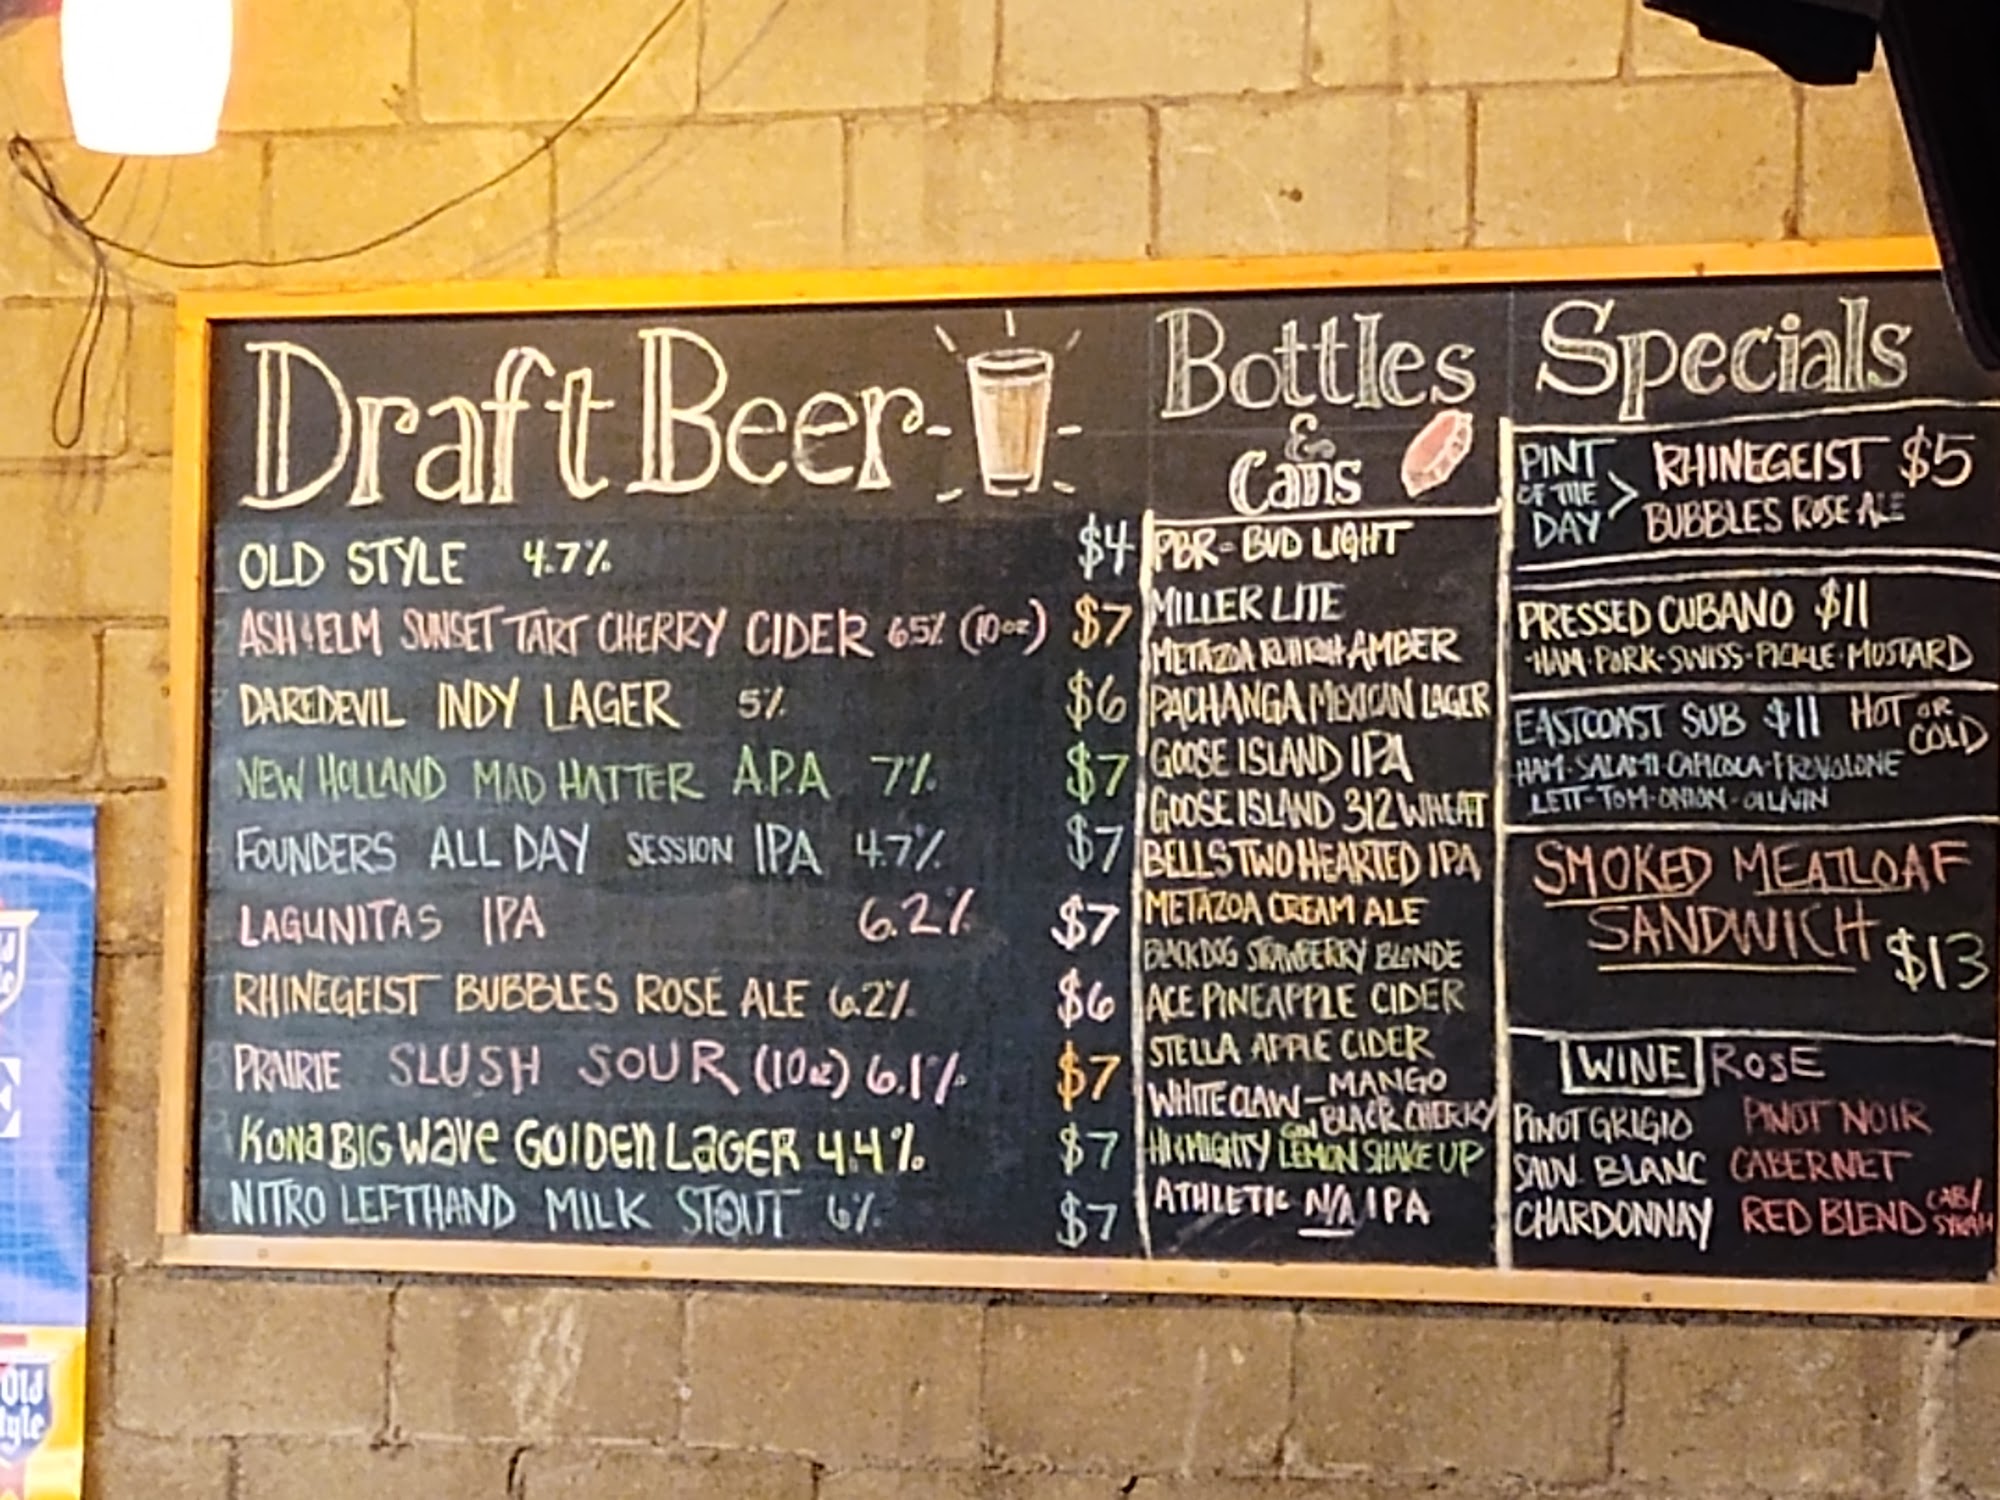 Draft Beer
OLD STYLE 4.7% $4
ASH & ELM SUNSET TART CHERRY CIDER 6.5% (10oz) $7
DAREDEVIL INDY LAGER 5% $6
NEW HOLLAND MAD HATTER A.P.A 7% $7
FOUNDERS ALL DAY SESSION IPA 4.7% $7
LAGUNITAS IPA 6.2% $7
RHINEGEIST BUBBLES ROSE ALE 6.2% $6
PRAIRIE SLUSH SOUR (10oz) 6.1% $7
KONA BIG WAVE GOLDEN LAGER 4.4% $7
NITRO LEFTHAND MILK STOUT 6% $7
Bottles
&
Cans
PBR - BUD LIGHT
MILLER LITE
METAZOA AMBER
PACHANGA MEXICAN LAGER
GOOSE ISLAND IPA
GOOSE ISLAND 312 WHEAT
BELLS TWO HEARTED IPA
METAZOA CREAM ALE
BLACKDOG STRAWBERRY BLONDE
ACE PINEAPPLE CIDER
STELLA APPLE CIDER
WHITE CLAW - MANGO
BLACK CHERRY
HI & MIGHTY GIN LEMON SHAKE UP
ATHLETIC N/A IPA
Specials
PINT
OF THE
DAY > RHINEGEIST $5
BUBBLES ROSE ALE
PRESSED CUBANO $11
-HAM-PORK-SWISS-PICKLE-MUSTARD
EASTCOAST SUB $11 HOT OR
COLD
HAM-SALAMI-CAPICOLA-PROVOLONE
LETT-TOM-ONION-OIL/VIN
SMOKED MEATLOAF
SANDWICH $13
WINE ROSE
PINOT GRIGIO PINOT NOIR
SAUV. BLANC CABERNET
CHARDONNAY RED BLEND CAB/
SYRAH
E
Old
tyle